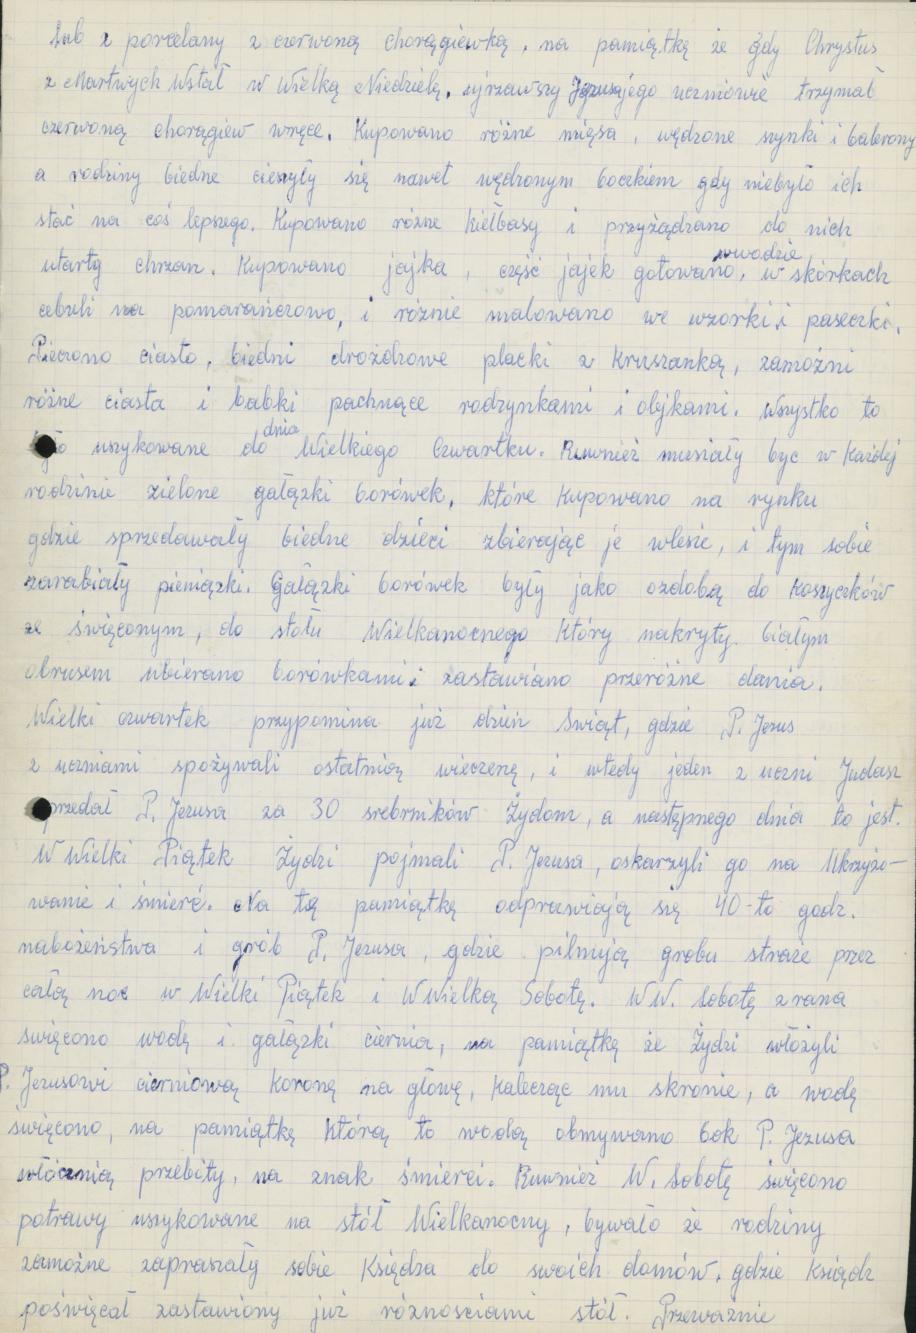 lub z porcelany z czerwoną chorągiewką, na pamiątkę że gdy Chrystus
z Martwych Wstał w Wielką Niedzielę, ujrzawszy Jezusa jego uczniowie trzymał
czerwoną chorągiew wręce. Kupowano różne mięsa, wędzone szynki i balerony
a rodziny biedne cieszyły się nawet wędzonym boczkiem gdy niebyło ich
stać na coś lepszego. Kupowano różne kiełbasy i przyżądzano do nich
utarty chrzan. Kupowano jajka, część jajek gotowano wwodzie, w skórkach
cebuli na pomarańczowo, i różnie malowano we wzorki i paseczki.
Pieczono ciasto, biedni drożdzowe placki z Kruszanką, zamożni
różne ciasta i babki pachnące rodzynkami i olejkami. Wszystko to
było uszykowane do dnia Wielkiego Czwartku. Ruwnież musiały byc w każdej
rodzinie zielone gałązki borówek, które kupowano na rynku
gdzie sprzedawały biedne dzieci zbierając je wlesie, i tym sobie
zarabiały pieniązki. Gałązki borówek były jako ozdobą do koszyczków
ze święconym, do stołu Wielkanocnego który nakryty białym
obrusem ubierano borówkami i zastawiano przeróżne dania.
Wielki czwartek przypomina już dzień Świąt, gdzie P. Jezus
z uczniami spożywali ostatnią wieczerzę, i wtedy jeden z uczni Judasz
sprzedał P. Jezusa za 30 srebrników Żydom, a następnego dnia to jest.
W Wielki Piątek Żydzi pojmali P. Jezusa, oskarzyli go na Ukrzyżo-
wanie i śmierć. Na tą pamiątkę odprawiają się 40-to godz.
nabożeństwa i grób P. Jezusa, gdzie pilnują grobu straże przez
całą noc w Wielki Piątek i W Wielką Sobotę. W W. Sobotę zrana
święcono wodę i gałązki ciernia, na pamiątkę że Żydzi włożyli
P. Jezusowi cierniową koronę na głowę, kalecząc mu skronie, a wodę
święcono, na pamiątkę którą to wodą obmywano bok P. Jezusa
włócznią przebity, na znak śmierci. Ruwnież W. Sobotę święcono
potrawy uszykowane na stół Wielkanocny, bywało że rodziny
zamożne zapraszały sobie Księdza do swoich domów, gdzie ksiądz
poświęcał zastawiony już różnosciami stół. Przewaznie